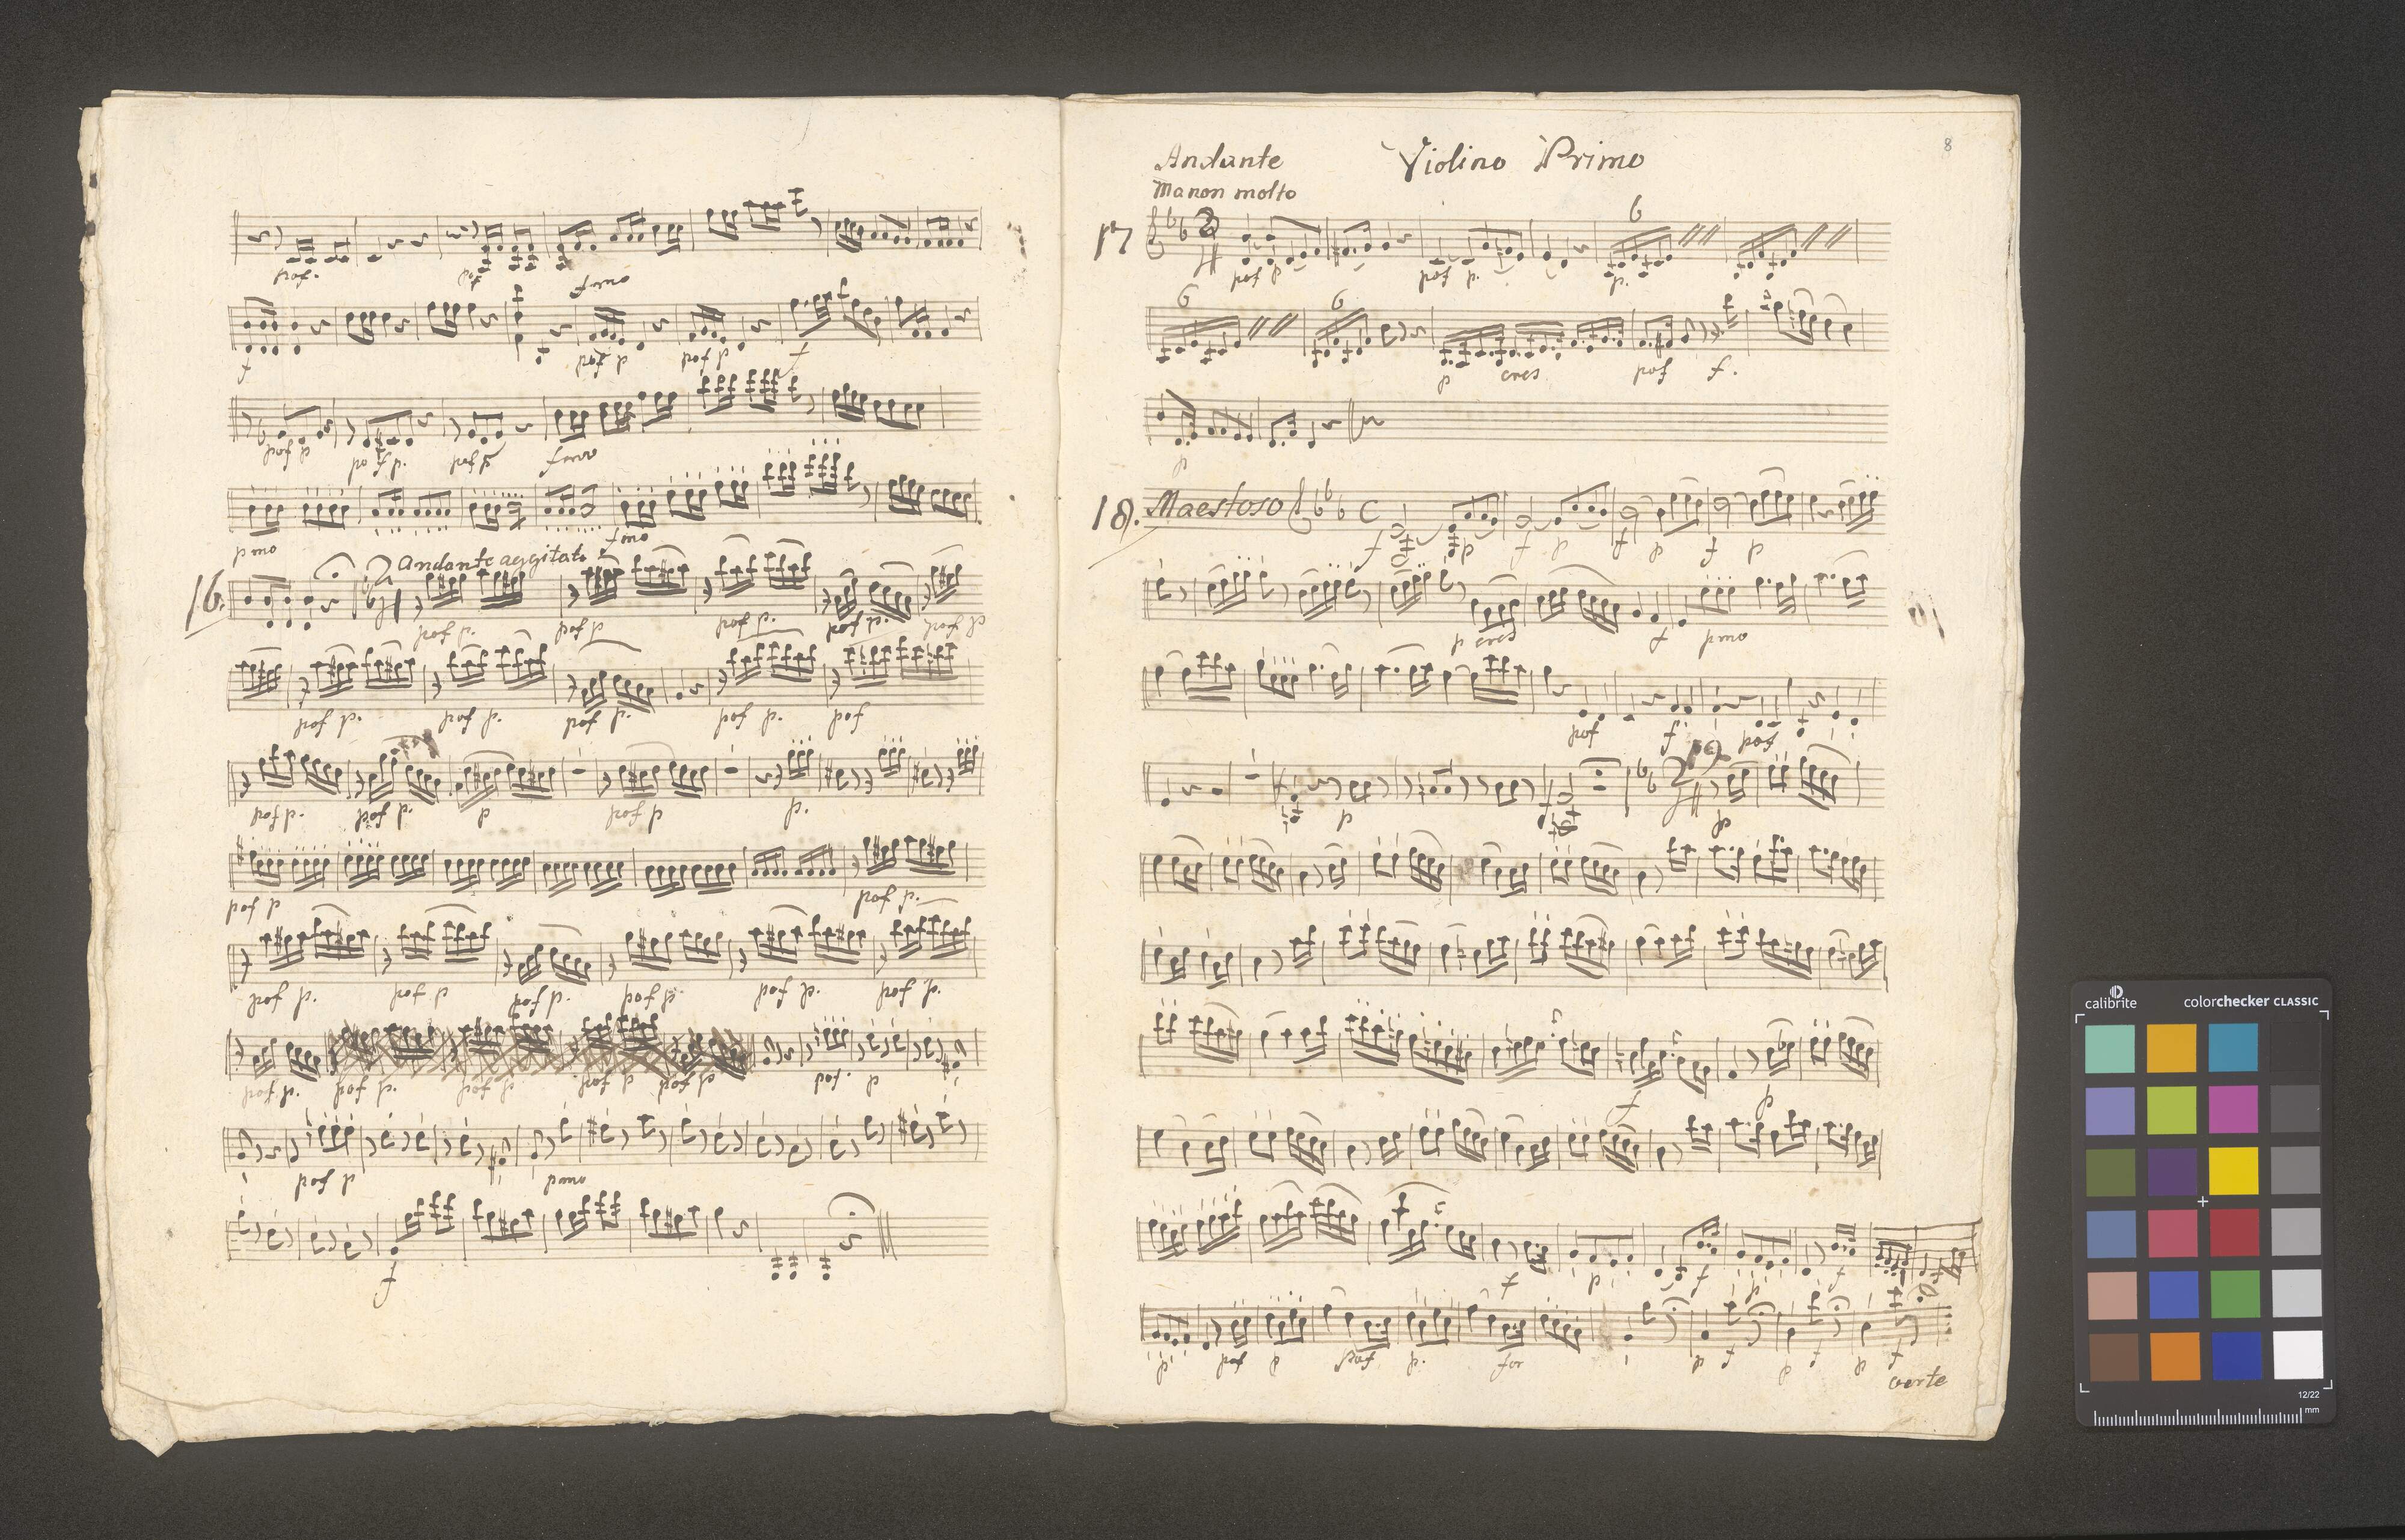 pof. pof fmo
f pof p pof p f
pof p pof p. pof p fmo
pmo fmo
16. Andante aggitato
2/4
pof p. pof p pof p. pof p. pof p
pof p. pof p. pof p. pof p. pof
pof p. pof p. p pof p p.
pof p pof p.
pof p. pof p pof p. pof p. pof p. pof p.
pof p. pof p. pof p pof p pof p pof. p
pof p pmo
f
8
Andante Violino Primo
Ma non molto
17 2/4 6
pof p pof p. p.
6 6
p cres pof f.
p
18. Maestoso C
f p f p f p f p
p cres f pmo
pof f pof
19
2/4
p p
f p
f p f p f
p pof p pof p. for p f p f p f
verte
calibrite colorchecker CLASSIC
12/22
mm